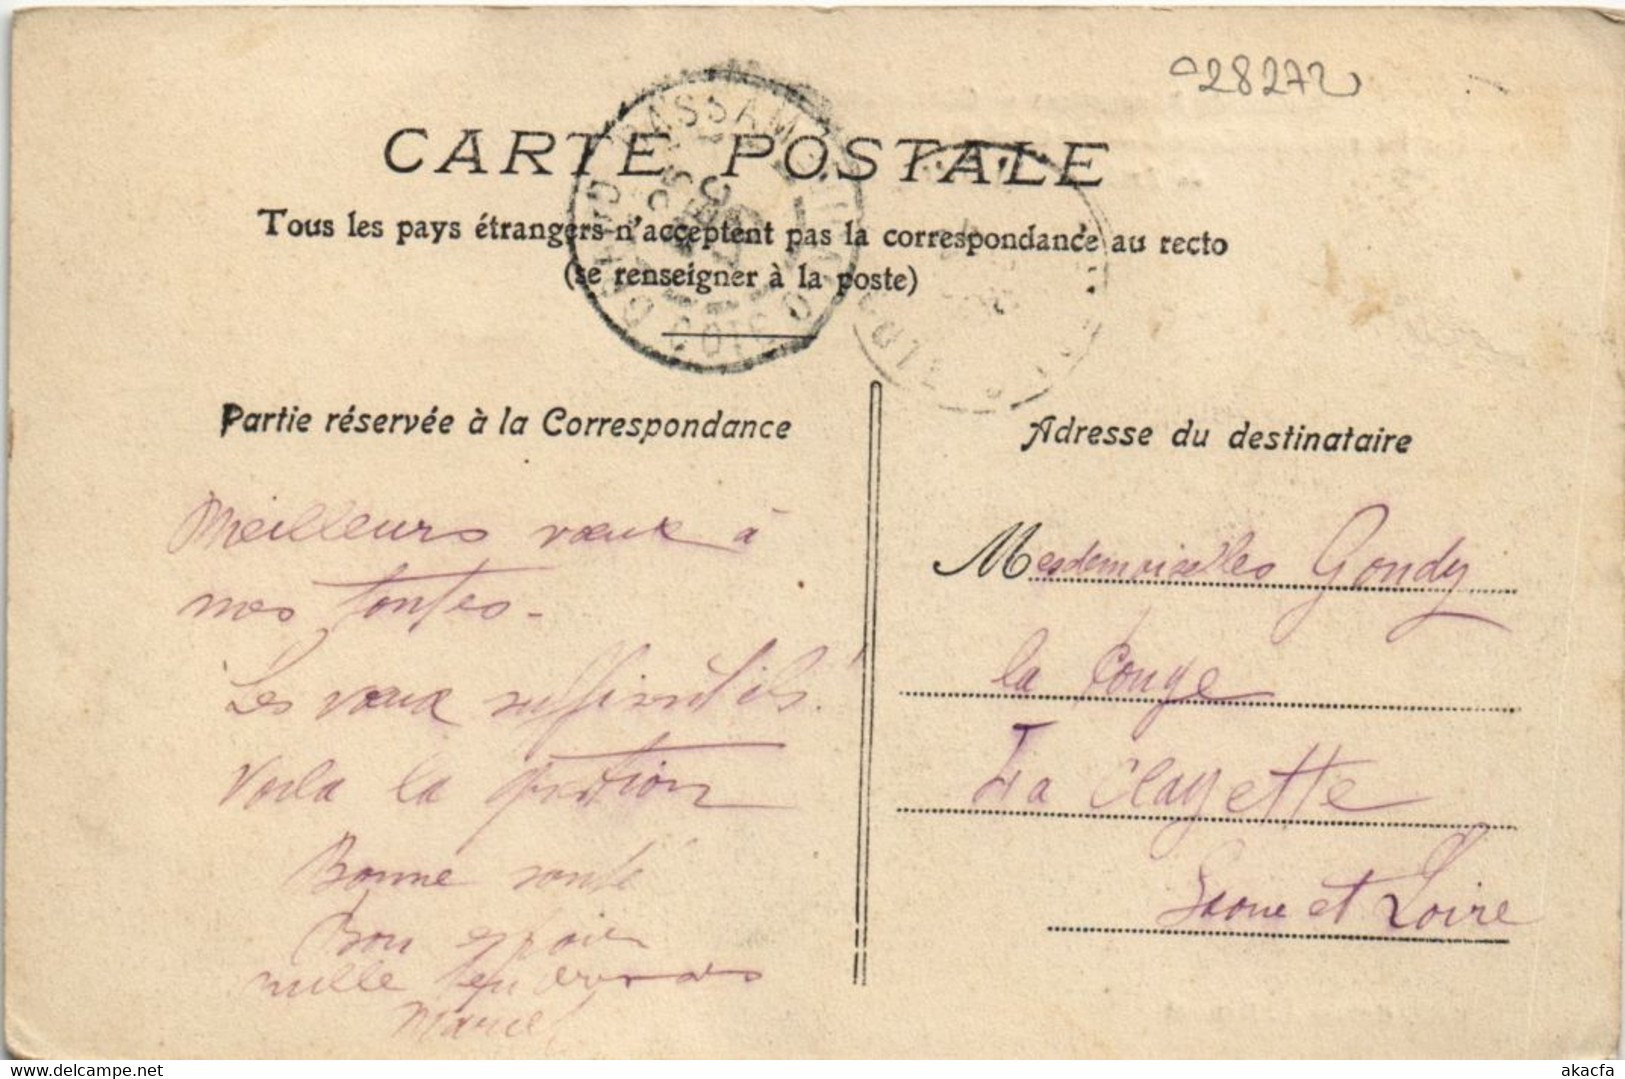 028272
CARTE POSTALE
Tous les pays étrangers n'acceptent pas la correspondance au recto
(se renseigner à la poste)
GRAND BASSAM
Partie réservée à la Correspondance
Adresse du destinataire
Meilleurs vœux à
mes toutes.
Les vœux suffisent ils!
Voila la question
Bonne santé
Bon espoir
mille tendresses
Marcel
Mesdemoiselles Gondy
la
La Clayette
Saone et Loire
delcampe.net
akacfa